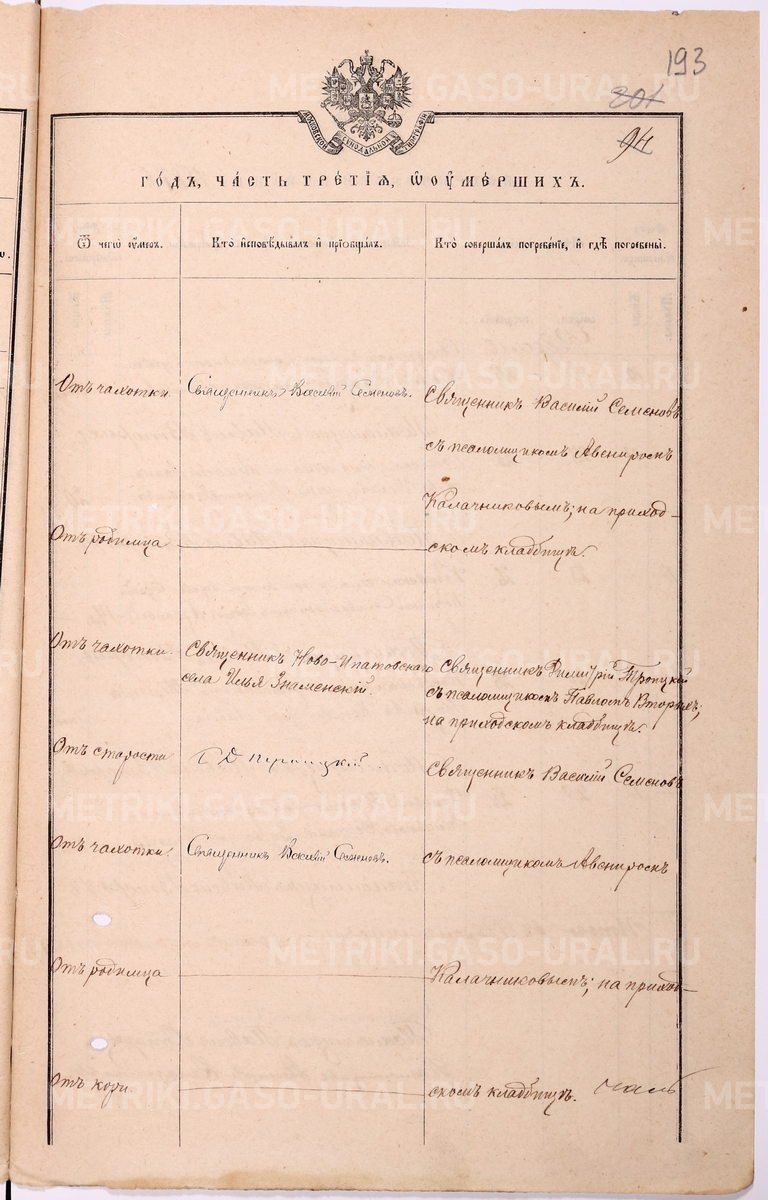 193
201
94
МОСКОВСКОЙ СѴНОДАЛЬНОЙ ТИПОГРАФІИ
ГОДЪ, ЧАСТЬ ТРЕТІЯ, Ѡ ОУМЕРШИХЪ.
Ѿ чегѡ оумеръ.
Кто исповѣдывалъ и пріобщалъ.
Кто совершалъ погребеніе, и гдѣ погребены.
Отъ чахотки
Священникъ Василій Семеновъ.
Священникъ Василій Семеновъ
съ псаломщикомъ Авениромъ
Калачниковымъ; на приход-
скомъ кладбищѣ.
Отъ родимца
Отъ чахотки.
Священникъ Ново-Ипатовскаго
села Илья Знаменскій.
Священникъ Димитрій Троицкій
съ псаломщикомъ Павломъ Вторыхъ;
на приходскомъ кладбищѣ.
Отъ старости
Троицкій
Священникъ Василій Семеновъ
Отъ чахотки.
Священникъ Василій Семеновъ.
съ псаломщикомъ Авениромъ
Отъ родимца
Калачниковымъ; на приход-
Отъ кори.
скомъ кладбищѣ.
METRIKI.GASO-URAL.RU